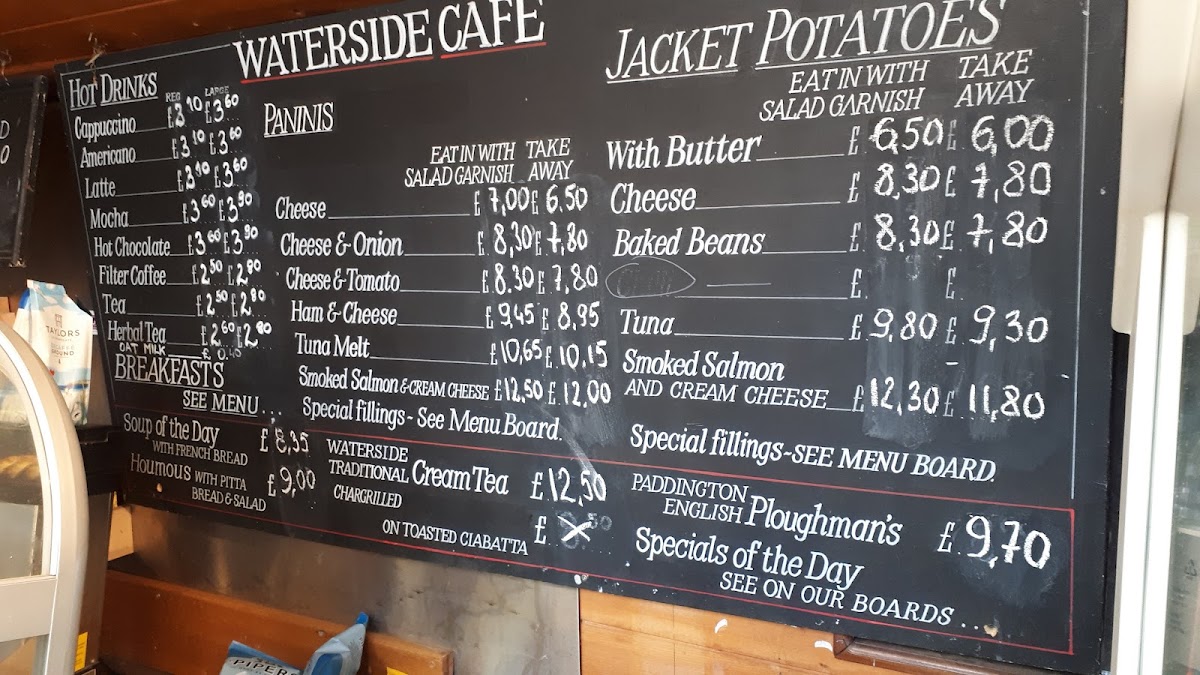 WATERSIDE CAFE
HOT DRINKS
REG LARGE
Cappuccino £3.10 £3.60
Americano £3.10 £3.60
Latte £3.10 £3.60
Mocha £3.60 £3.90
Hot Chocolate £3.60 £3.90
Filter Coffee £2.50 £2.80
Tea £2.50 £2.80
Herbal Tea £2.60 £2.80
OAT MILK £0.40
BREAKFASTS
SEE MENU...
Soup of the Day £8,35
WITH FRENCH BREAD
Houmous WITH PITTA £9,00
BREAD & SALAD
PANINIS
EAT IN WITH TAKE
SALAD GARNISH AWAY
Cheese £7,00 £6.50
Cheese & Onion £8,30 £7,80
Cheese & Tomato £8.30 £7,80
Ham & Cheese £9,45 £8,95
Tuna Melt £10,65 £10,15
Smoked Salmon & CREAM CHEESE £12,50 £12,00
Special fillings - See Menu Board.
WATERSIDE
TRADITIONAL Cream Tea £12,50
CHARGRILLED
ON TOASTED CIABATTA £
JACKET POTATOES
EAT IN WITH TAKE
SALAD GARNISH AWAY
With Butter £6,50 £6,00
Cheese £8,30 £7,80
Baked Beans £8,30 £7,80
£ £
Tuna £9,80 £9,30
Smoked Salmon
AND CREAM CHEESE £12,30 £11,80
Special fillings - SEE MENU BOARD.
PADDINGTON
ENGLISH Ploughman's £9,70
Specials of the Day
SEE ON OUR BOARDS...
TAYLORS
GROUND
PIPERS